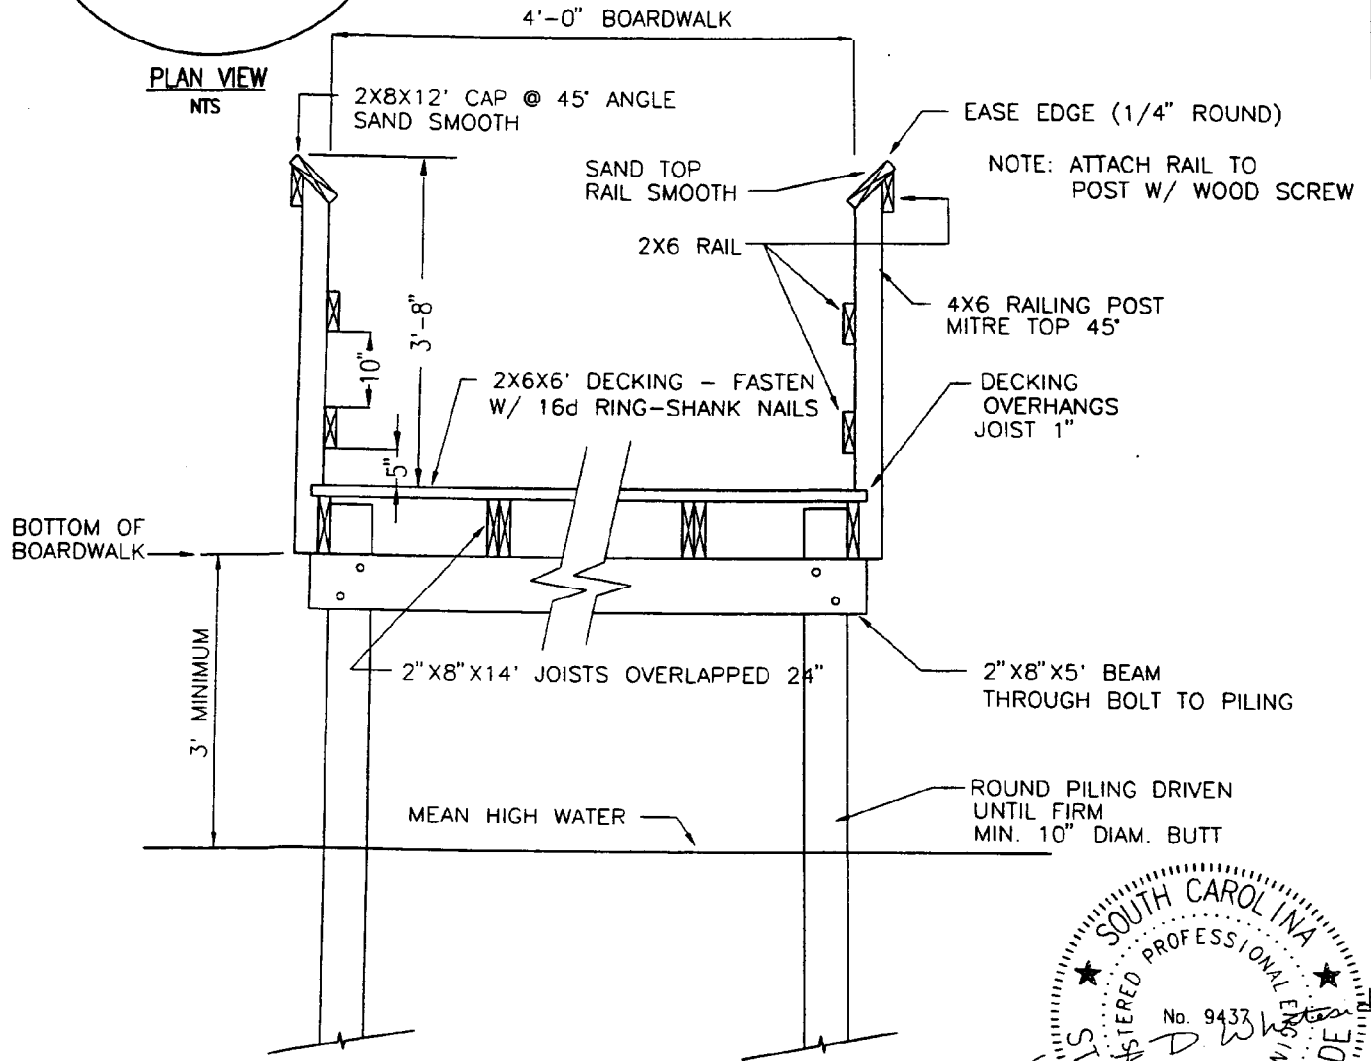 4'-0" BOARDWALK
PLAN VIEW
NTS
2X8X12' CAP @ 45° ANGLE
SAND SMOOTH
EASE EDGE (1/4" ROUND)
SAND TOP
RAIL SMOOTH
NOTE: ATTACH RAIL TO
POST W/ WOOD SCREW
2X6 RAIL
3'-8"
4X6 RAILING POST
MITRE TOP 45°
10"
2X6X6' DECKING - FASTEN
W/ 16d RING-SHANK NAILS
DECKING
OVERHANGS
JOIST 1"
5"
BOTTOM OF
BOARDWALK
3' MINIMUM
2"X8"X14' JOISTS OVERLAPPED 24"
2"X8"X5' BEAM
THROUGH BOLT TO PILING
MEAN HIGH WATER
ROUND PILING DRIVEN
UNTIL FIRM
MIN. 10" DIAM. BUTT
SOUTH CAROLINA
PROFESSIONAL
No. 9437